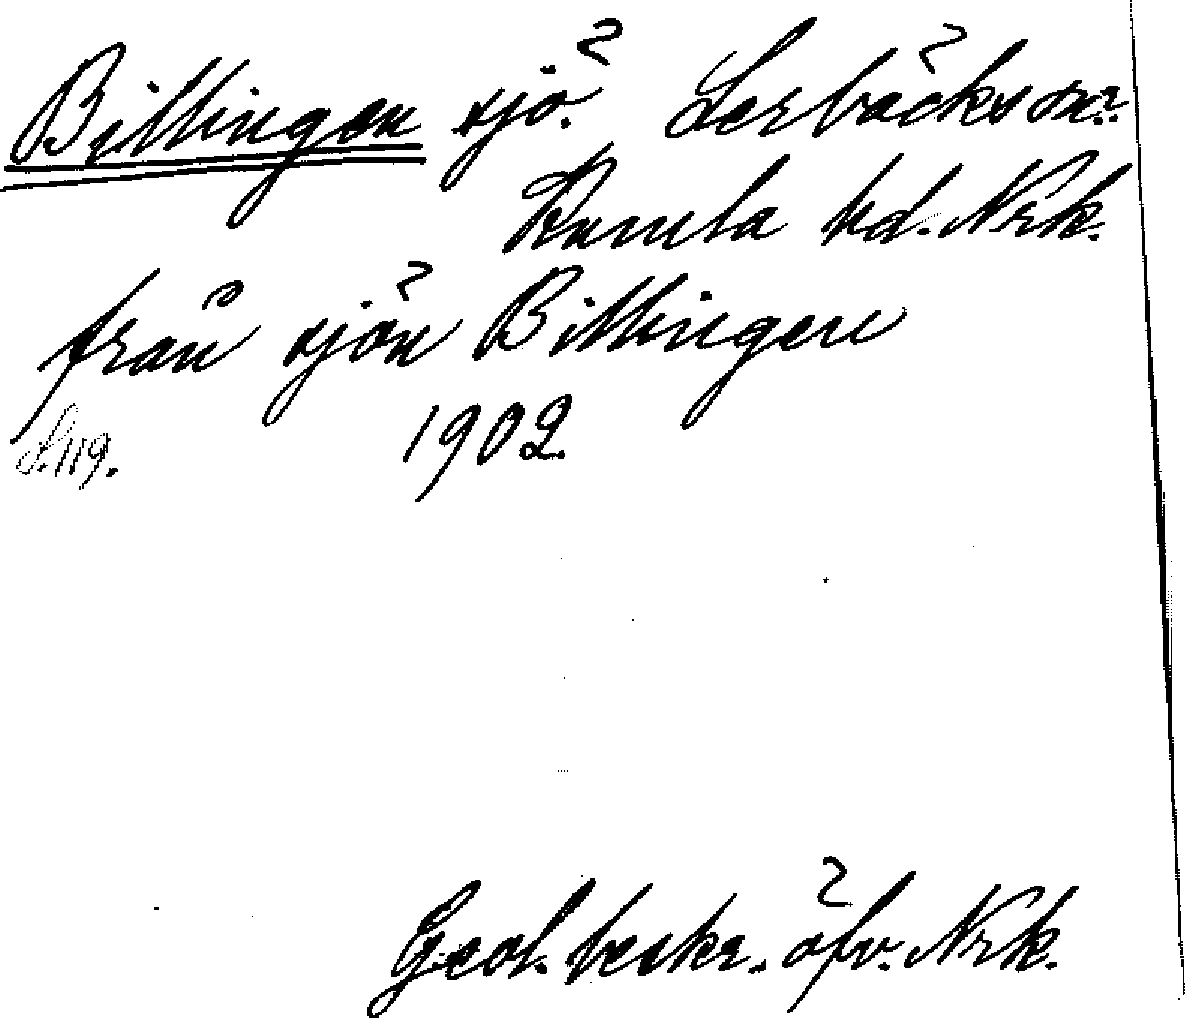 Billingen sjö. Lerbäcks sn.
Kumla hd. Nrk.
från sjön Billingen
S. 119. 1902.
Geol. beskr. öfv. Nrk.